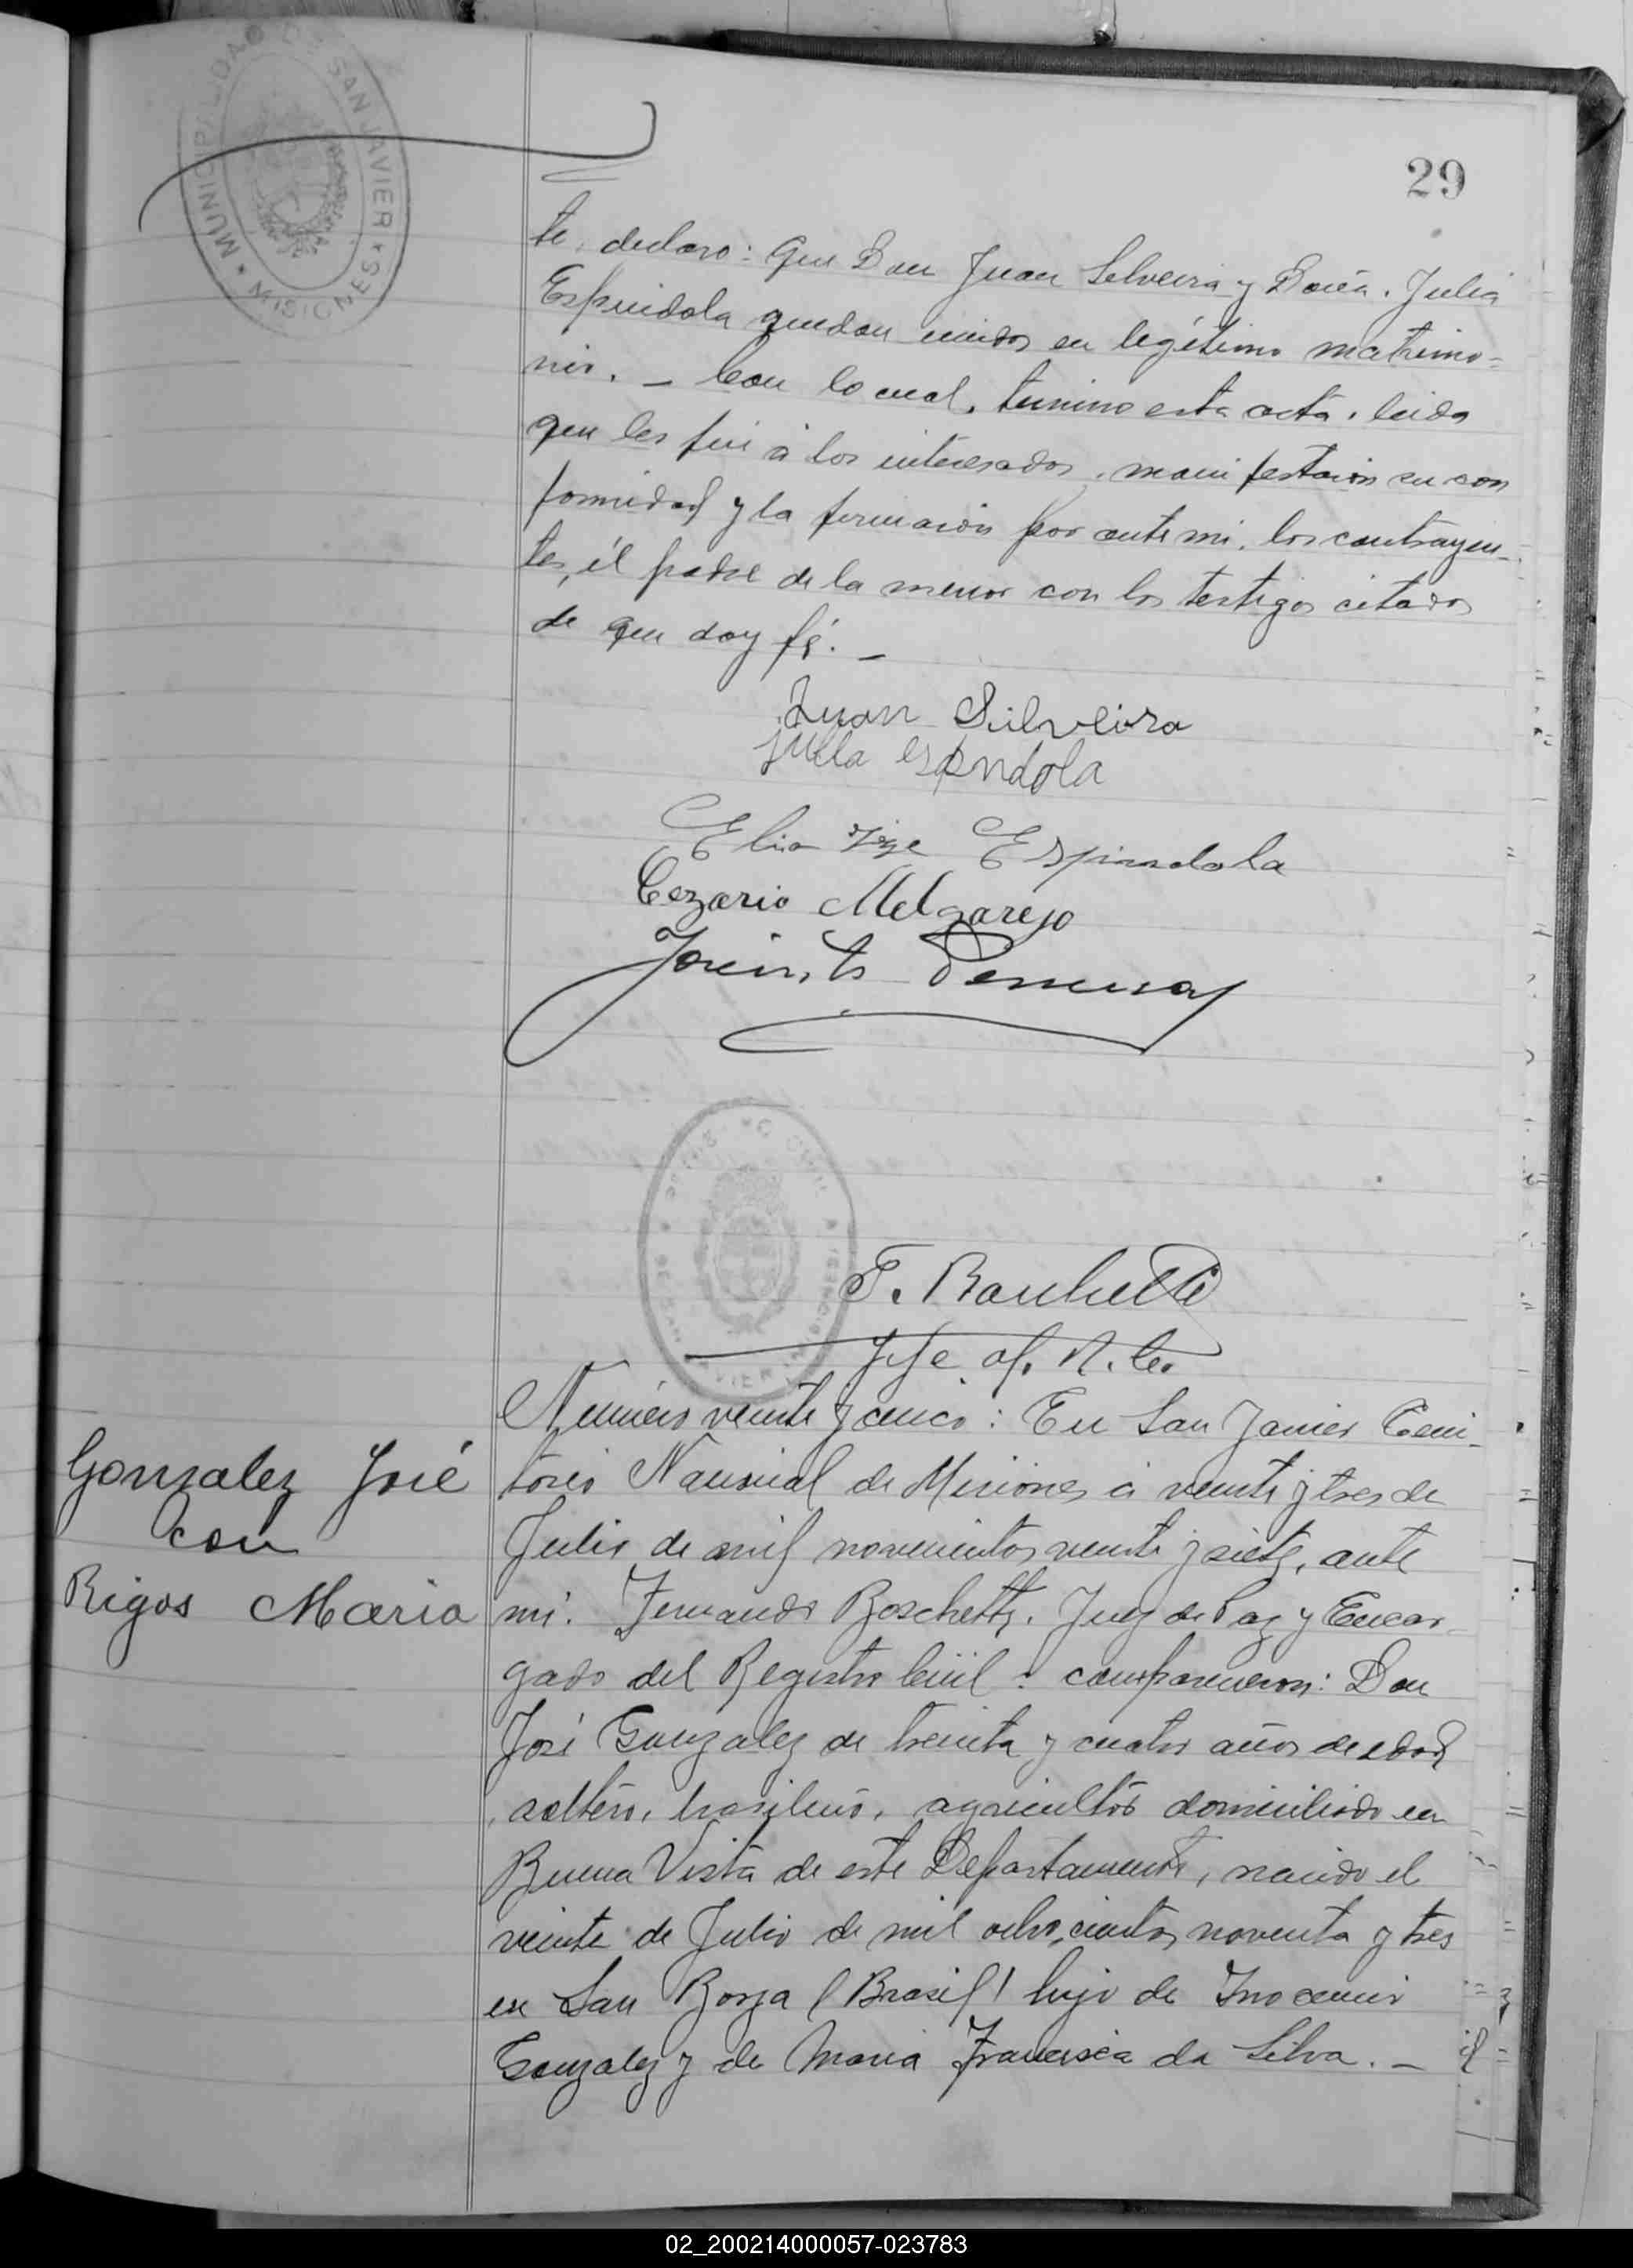 MUNICIPALIDAD DE SAN JAVIER
* MISIONES *
29
te, declaro: Que Don Juan Silveira y Doña. Julia
Espindola quedan unidos en legítimo matrimo=
nio. _ Con lo cual, termino esta acta, leida
que les fué á los interesados, manifestaron su con
formidad y la firmaron por ante mi, los contrayen_
tes, él padre de la menor con los testigos citados
de que doy fé. _
Juan Silveira
julia espndola
Espindola
Cezario Melgarejo
Jacinto
F. Boschetti
Jefe of. R. C.
Número veinte y cinco: En San Javier Terri_
torio Nacional de Misiones á veinte y tres de
Julio de mil novecientos veinte y siete, ante
mi. Fernando Boschetti. Juez de Paz y Encar_
gado del Registro Civil: comparecieron: Don
José Gonzalez de treinta y cuatro años de edad
, soltero, brasilero, agricultor domiciliado en
Buena Vista de este Departamento, nacido el
veinte de Julio de mil ochocientos noventa y tres
en San Borja (Brasil) hijo de Inocencio
Gonzalez y de Maria Francisca da Silva. _
Gonzalez José
con
Rigos Maria
02_200214000057-023783